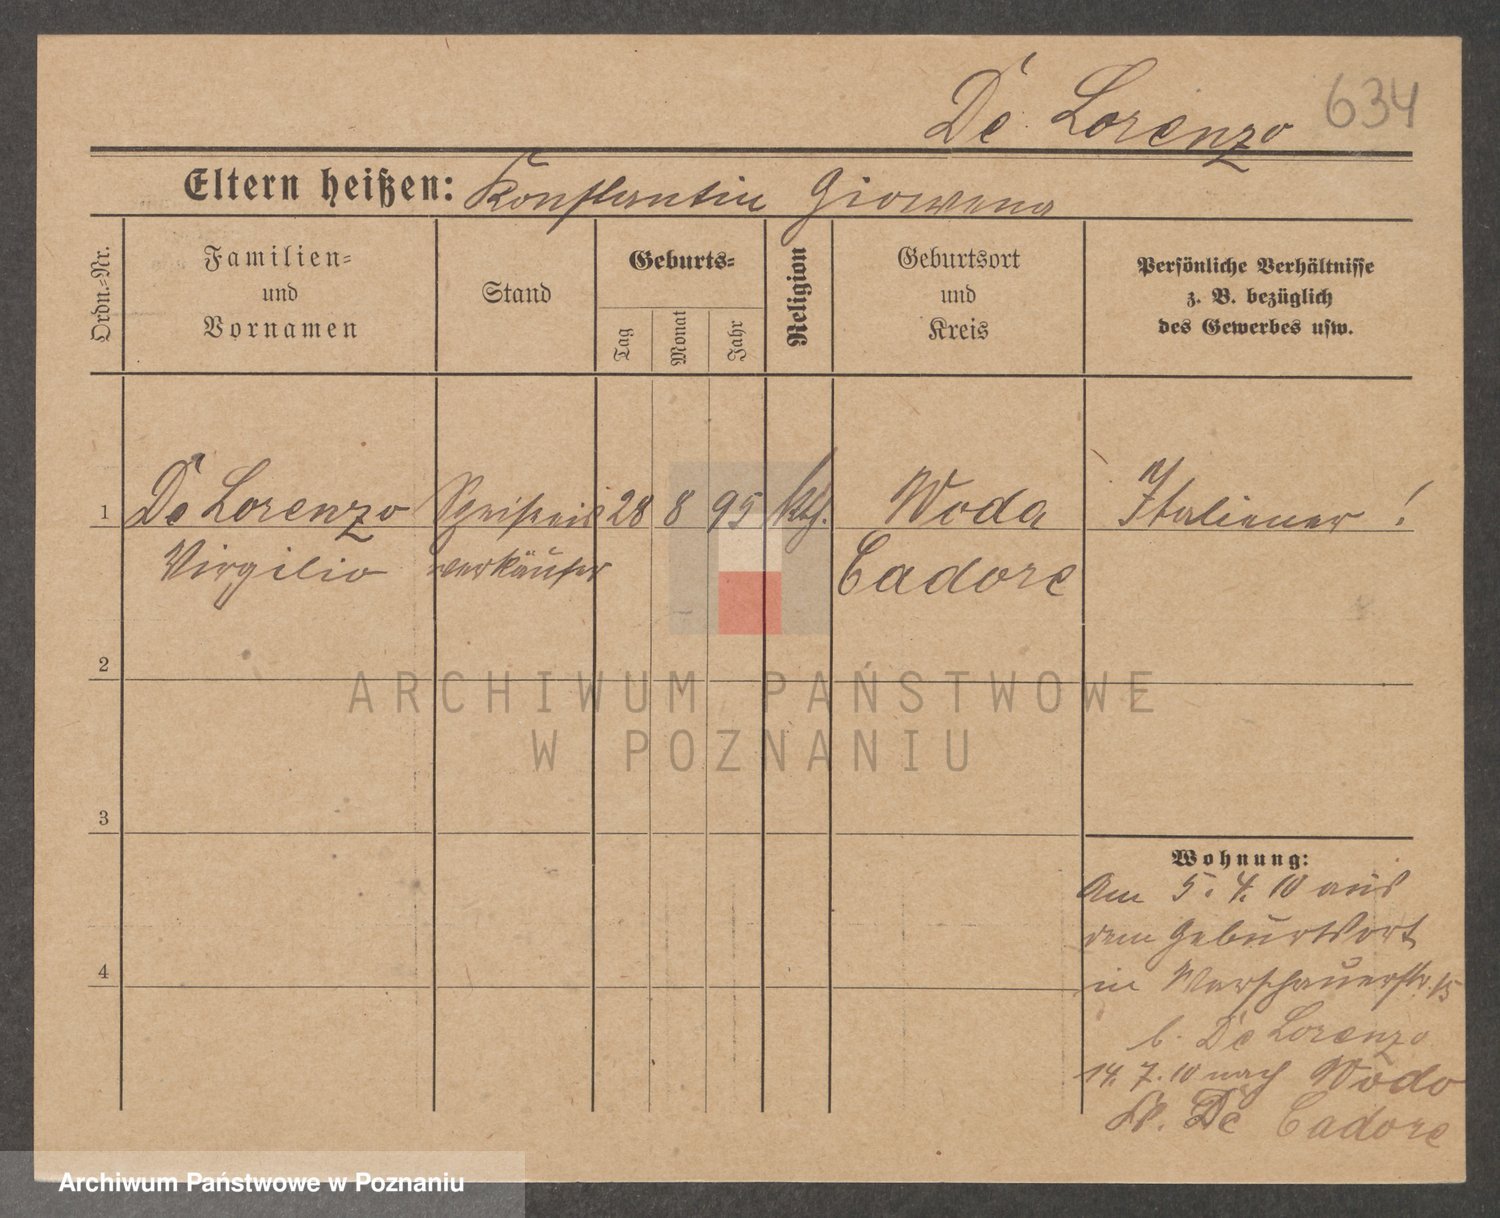 De Lorenzo 634
Eltern heißen: Konstantin Giowena
Ordn.-Nr.
Familien-
und
Vornamen
Stand
Geburts-
Tag
Monat
Jahr
Religion
Geburtsort
und
Kreis
Persönliche Verhältnisse
z. B. bezüglich
des Gewerbes usw.
1 De Lorenzo Speiseeis 28 8 95 kth. Woda Italiener !
Virgilio verkäufer Cadore
2
3
4
Wohnung:
Am 5. 4. 10 aus
dem Geburtsort
in Warschauerstr. 15
b. De Lorenzo
14. 7. 10 nach Wodo
De Cadore
ARCHIWUM PAŃSTWOWE
W POZNANIU
Archiwum Państwowe w Poznaniu